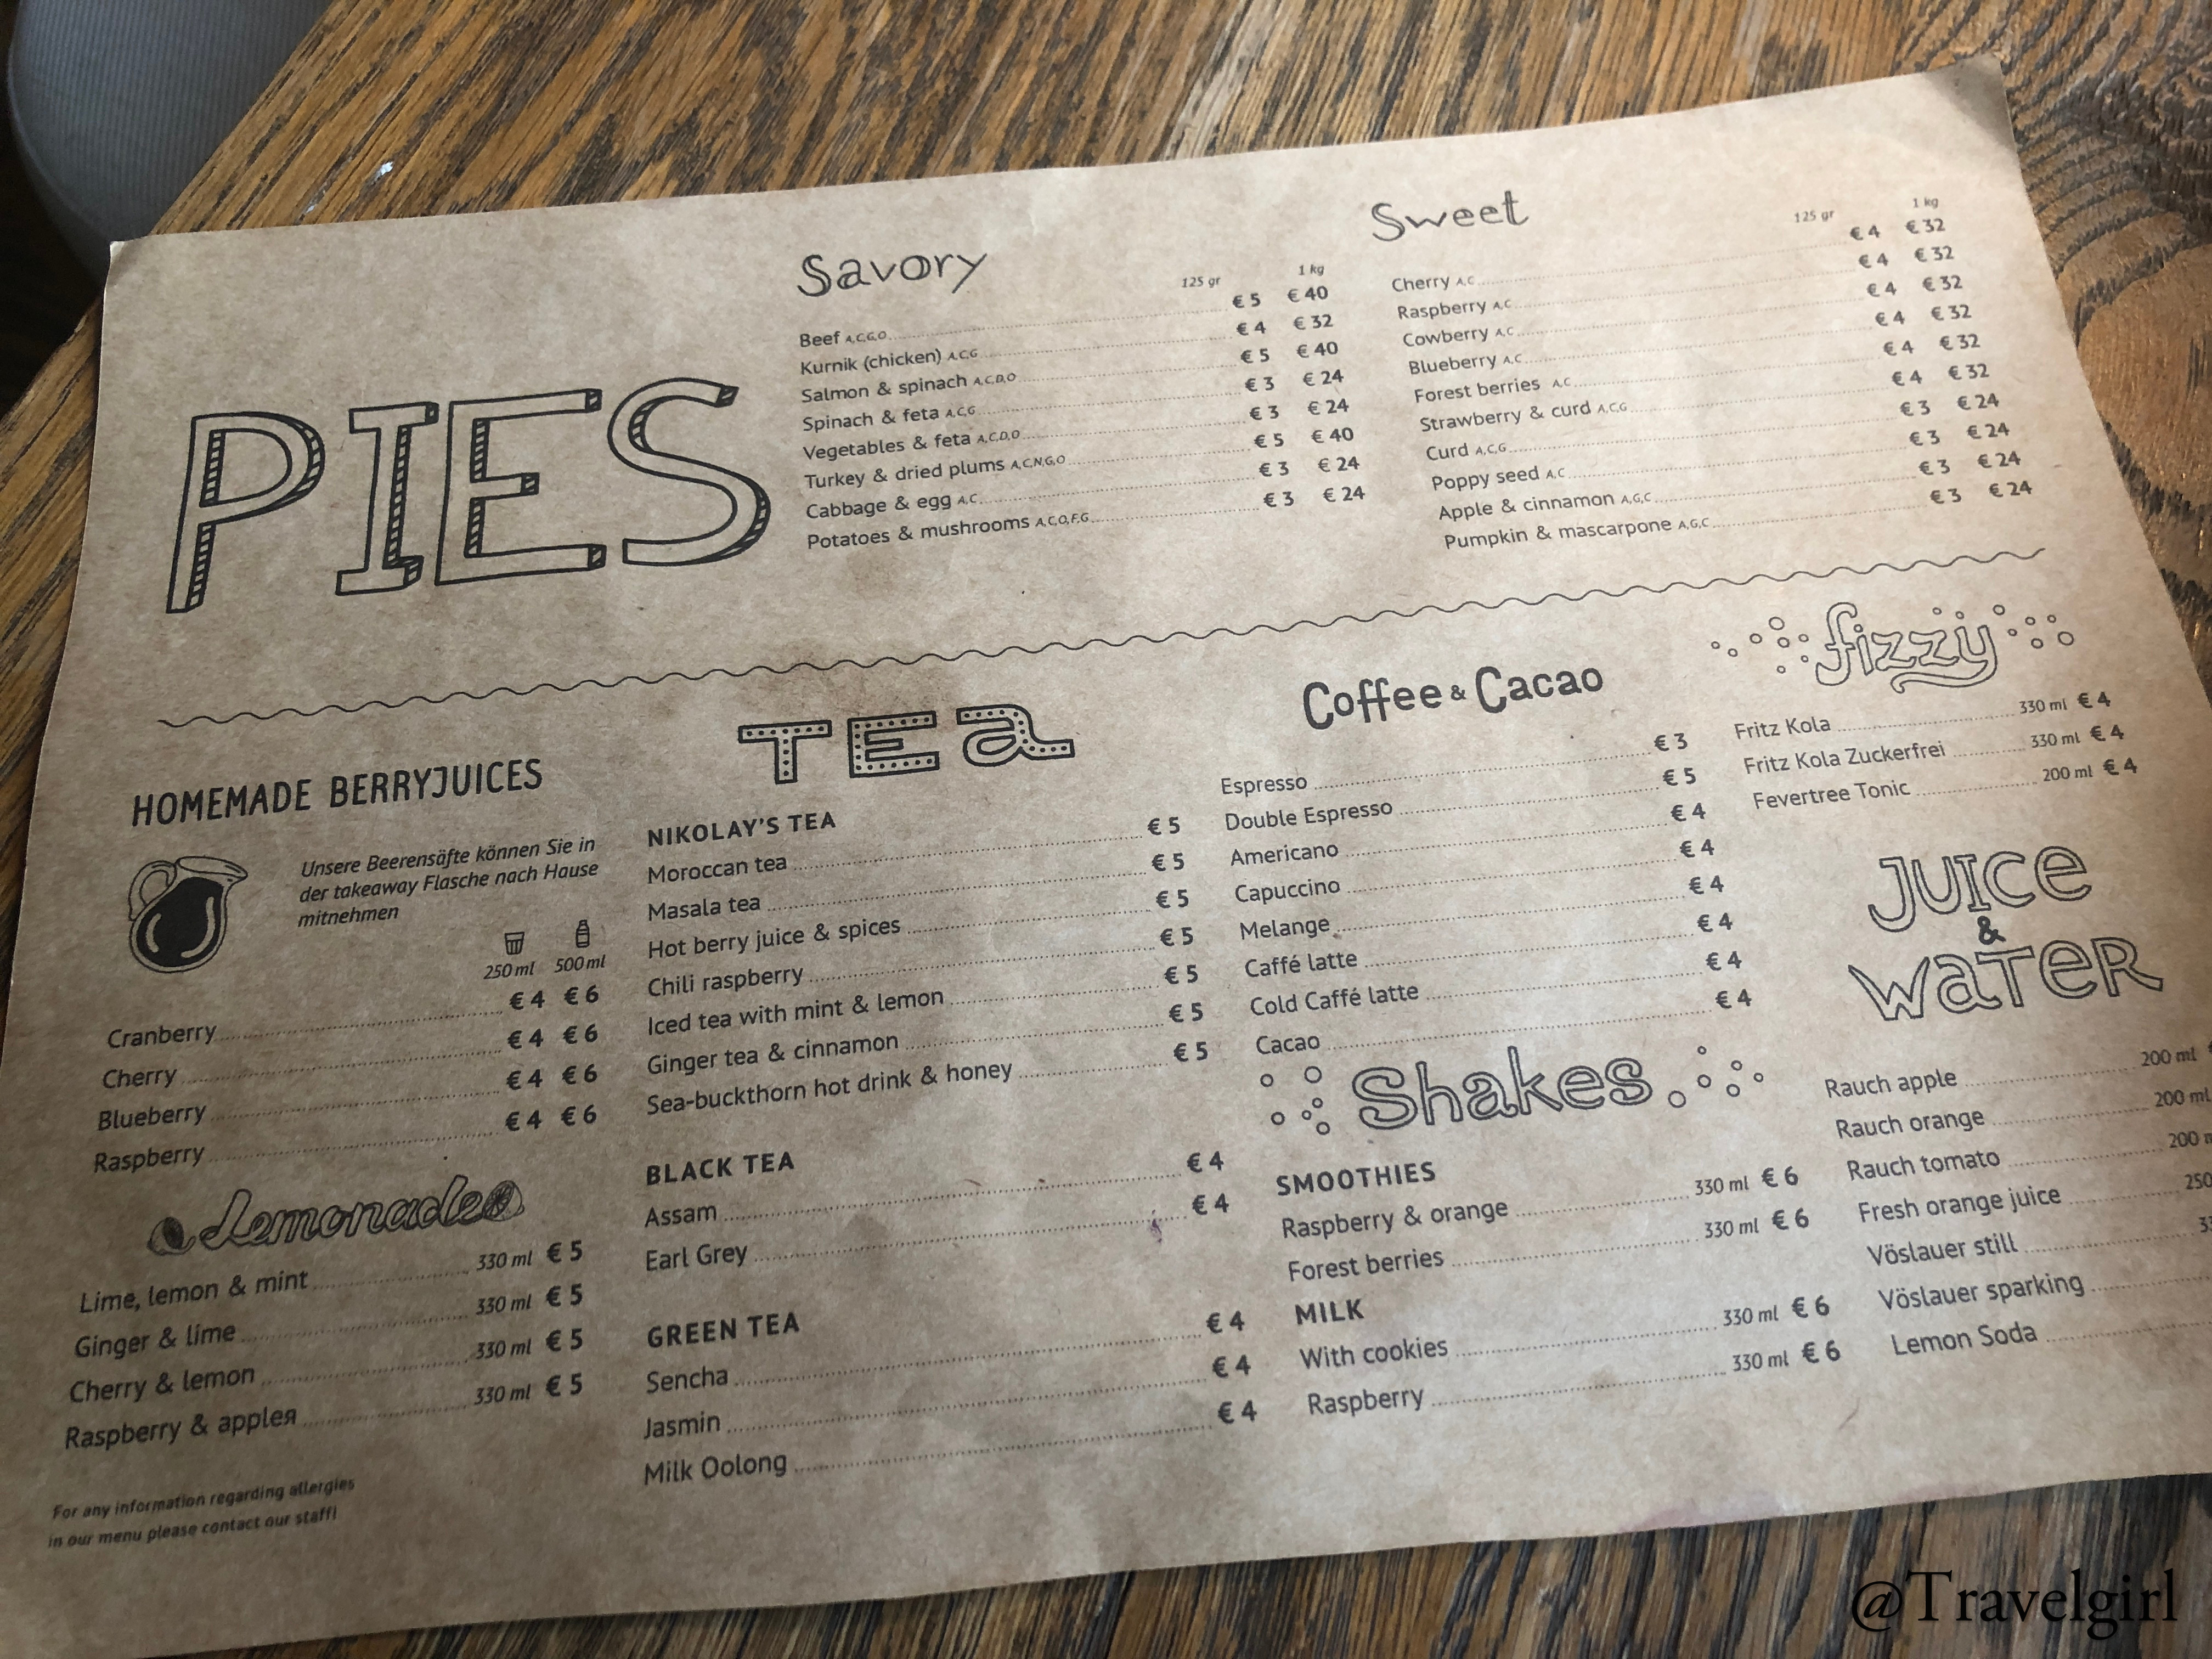 PIES
Savory
125 gr 1 kg
Beef A,C,G,O € 5 € 40
Kurnik (chicken) A,C,G € 4 € 32
Salmon & spinach A,C,D,O € 5 € 40
Spinach & feta A,C,G € 3 € 24
Vegetables & feta A,C,D,O € 3 € 24
Turkey & dried plums A,C,N,G,O € 5 € 40
Cabbage & egg A,C € 3 € 24
Potatoes & mushrooms A,C,O,F,G € 3 € 24
Sweet
125 gr 1 kg
Cherry A,C € 4 € 32
Raspberry A,C € 4 € 32
Cowberry A,C € 4 € 32
Blueberry A,C € 4 € 32
Forest berries A,C € 4 € 32
Strawberry & curd A,C,G € 4 € 32
Curd A,C,G € 3 € 24
Poppy seed A,C € 3 € 24
Apple & cinnamon A,G,C € 3 € 24
Pumpkin & mascarpone A,G,C € 3 € 24
HOMEMADE BERRYJUICES
Unsere Beerensäfte können Sie in
der takeaway Flasche nach Hause
mitnehmen
250 ml 500 ml
Cranberry € 4 € 6
Cherry € 4 € 6
Blueberry € 4 € 6
Raspberry € 4 € 6
Lemonade
Lime, lemon & mint 330 ml € 5
Ginger & lime 330 ml € 5
Cherry & lemon 330 ml € 5
Raspberry & appleя 330 ml € 5
For any information regarding allergies
in our menu please contact our staff!
Tea
NIKOLAY'S TEA
Moroccan tea € 5
Masala tea € 5
Hot berry juice & spices € 5
Chili raspberry € 5
Iced tea with mint & lemon € 5
Ginger tea & cinnamon € 5
Sea-buckthorn hot drink & honey € 5
BLACK TEA
Assam € 4
Earl Grey € 4
GREEN TEA
Sencha € 4
Jasmin € 4
Milk Oolong € 4
Coffee & Cacao
Espresso € 3
Double Espresso € 5
Americano € 4
Capuccino € 4
Melange € 4
Caffé latte € 4
Cold Caffé latte € 4
Cacao € 4
Shakes
SMOOTHIES
Raspberry & orange 330 ml € 6
Forest berries 330 ml € 6
MILK
With cookies 330 ml € 6
Raspberry 330 ml € 6
fizzy
Fritz Kola 330 ml € 4
Fritz Kola Zuckerfrei 330 ml € 4
Fevertree Tonic 200 ml € 4
Juice
&
Water
Rauch apple 200 ml
Rauch orange 200 ml
Rauch tomato 200
Fresh orange juice 250
Vöslauer still
Vöslauer sparking
Lemon Soda
@Travelgirl